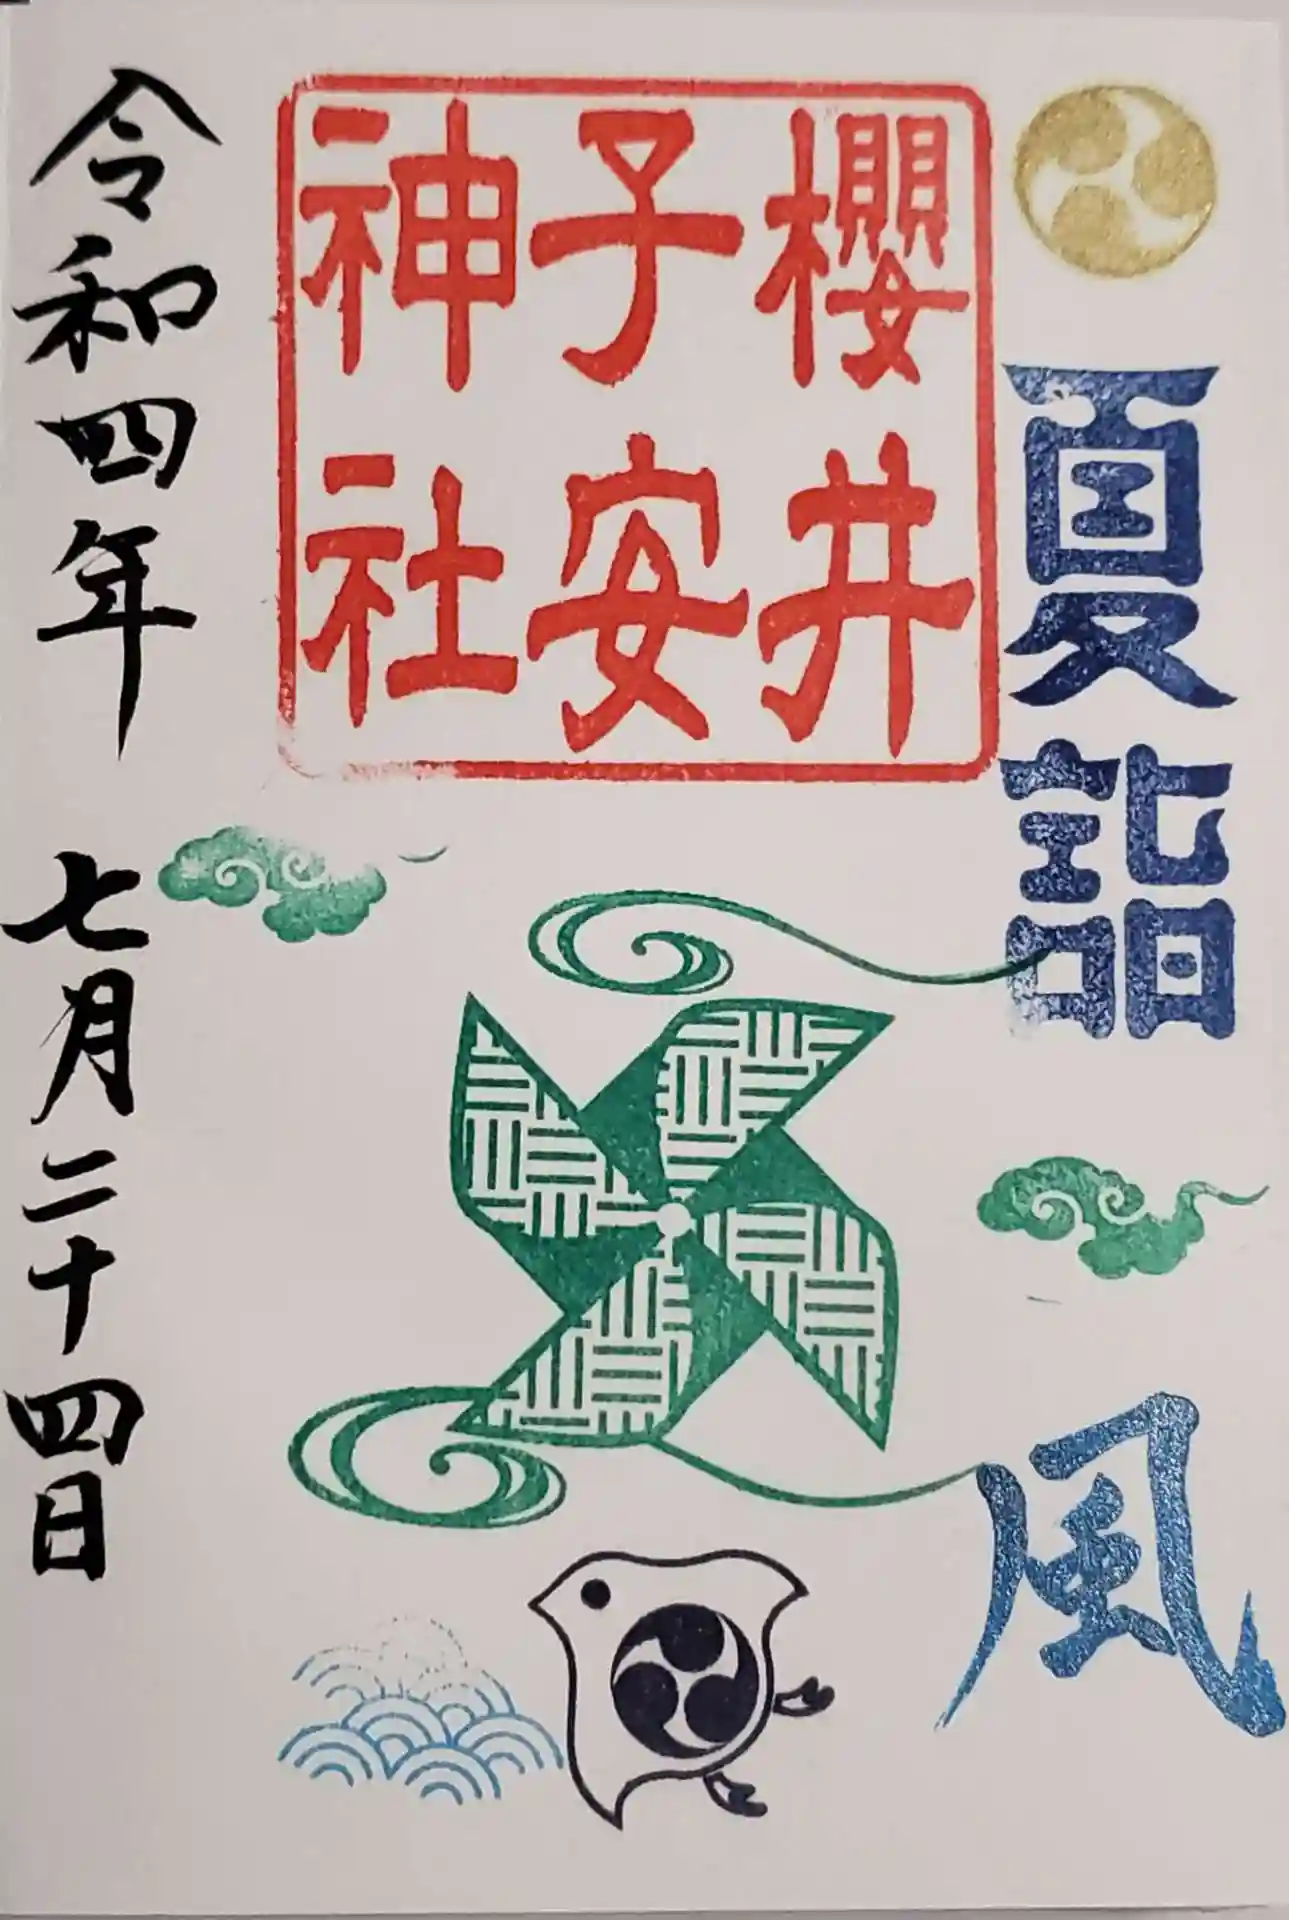 夏詣
風
櫻井
子安
神社
令和四年 七月二十四日